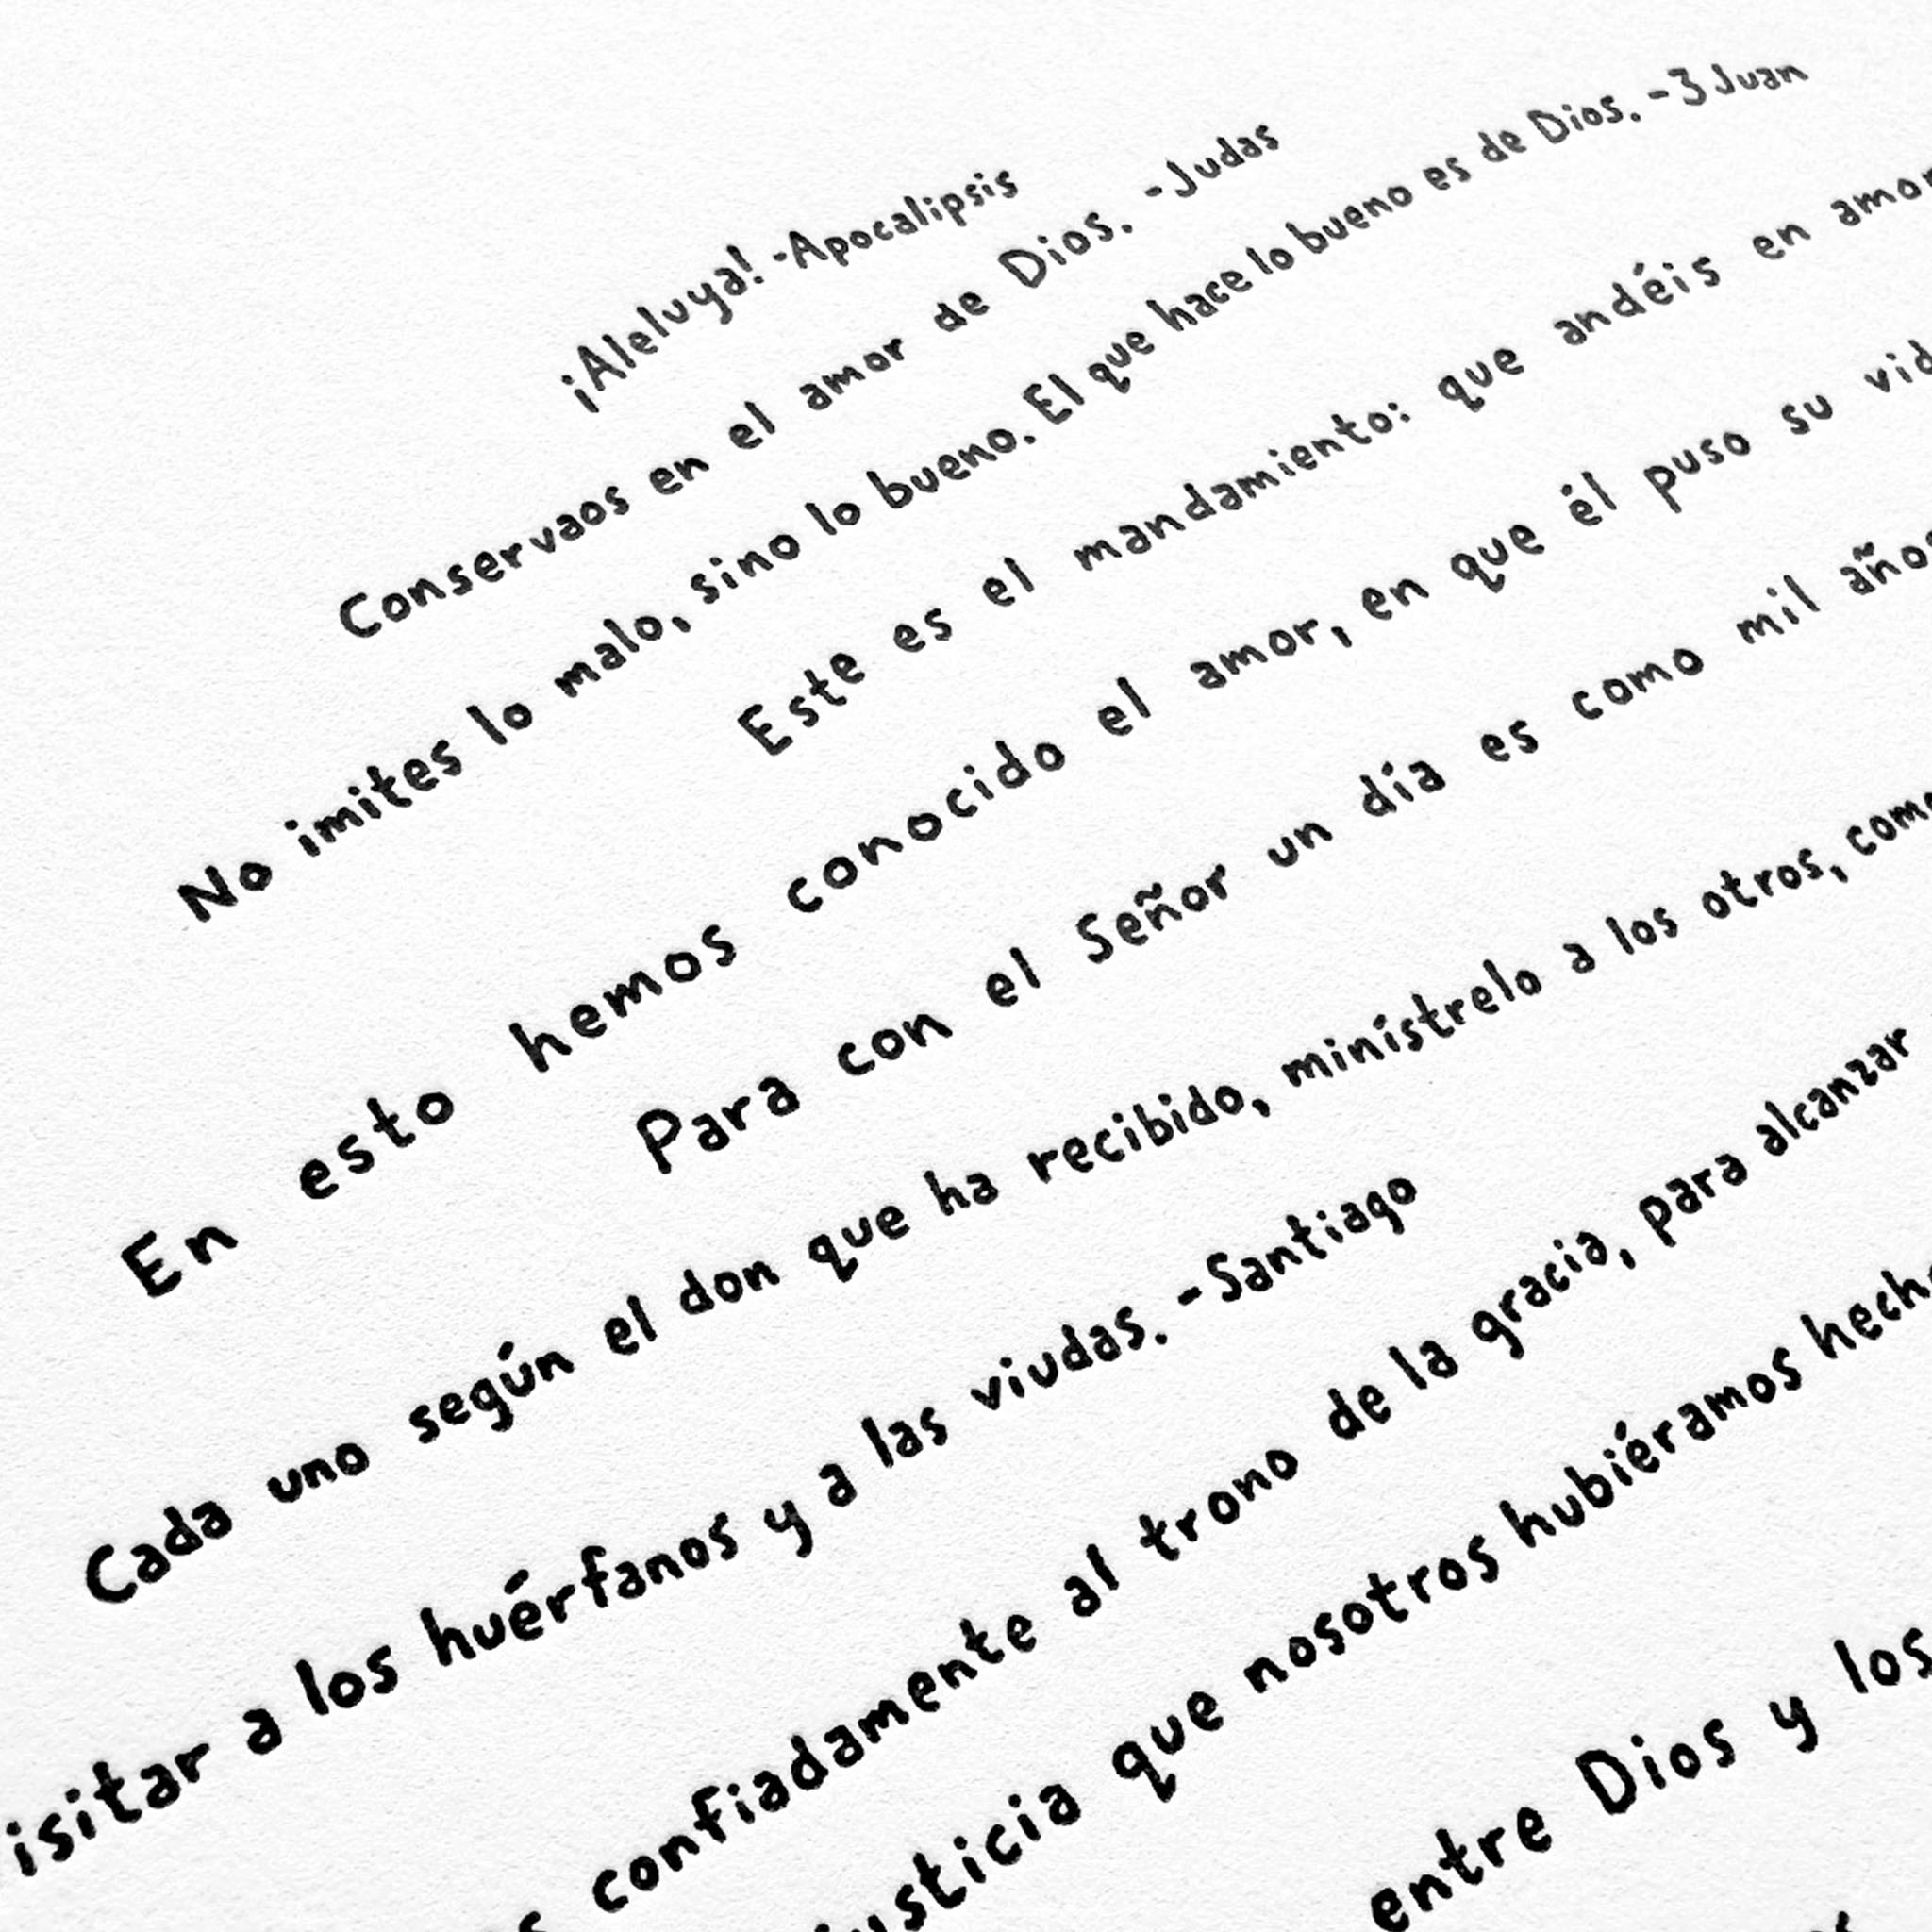 ¡Aleluya! -Apocalipsis
Conservaos en el amor de Dios. -Judas
No imites lo malo, sino lo bueno. El que hace lo bueno es de Dios. -3 Juan
Este es el mandamiento: que andéis en amor
En esto hemos conocido el amor, en que él puso su vid
Para con el Señor un día es como mil años
Cada uno según el don que ha recibido, minístrelo a los otros, como
isitar a los huérfanos y a las viudas. -Santiago
confiadamente al trono de la gracia, para alcanzar
usticia que nosotros hubiéramos hech
entre Dios y los